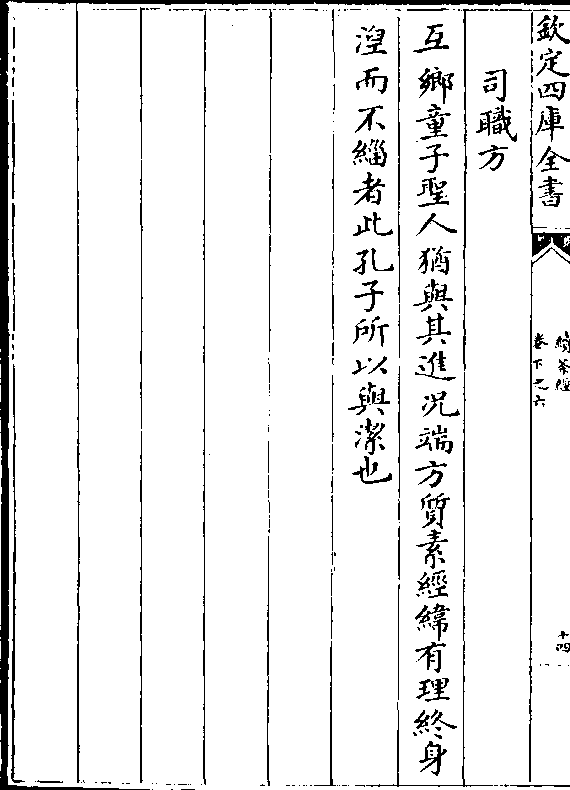 欽定四庫全書
續茶經
卷下之六
十四
司職方
互鄉童子聖人猶與其進况端方質素經緯有理終身
湼而不緇者此孔子所以與潔也